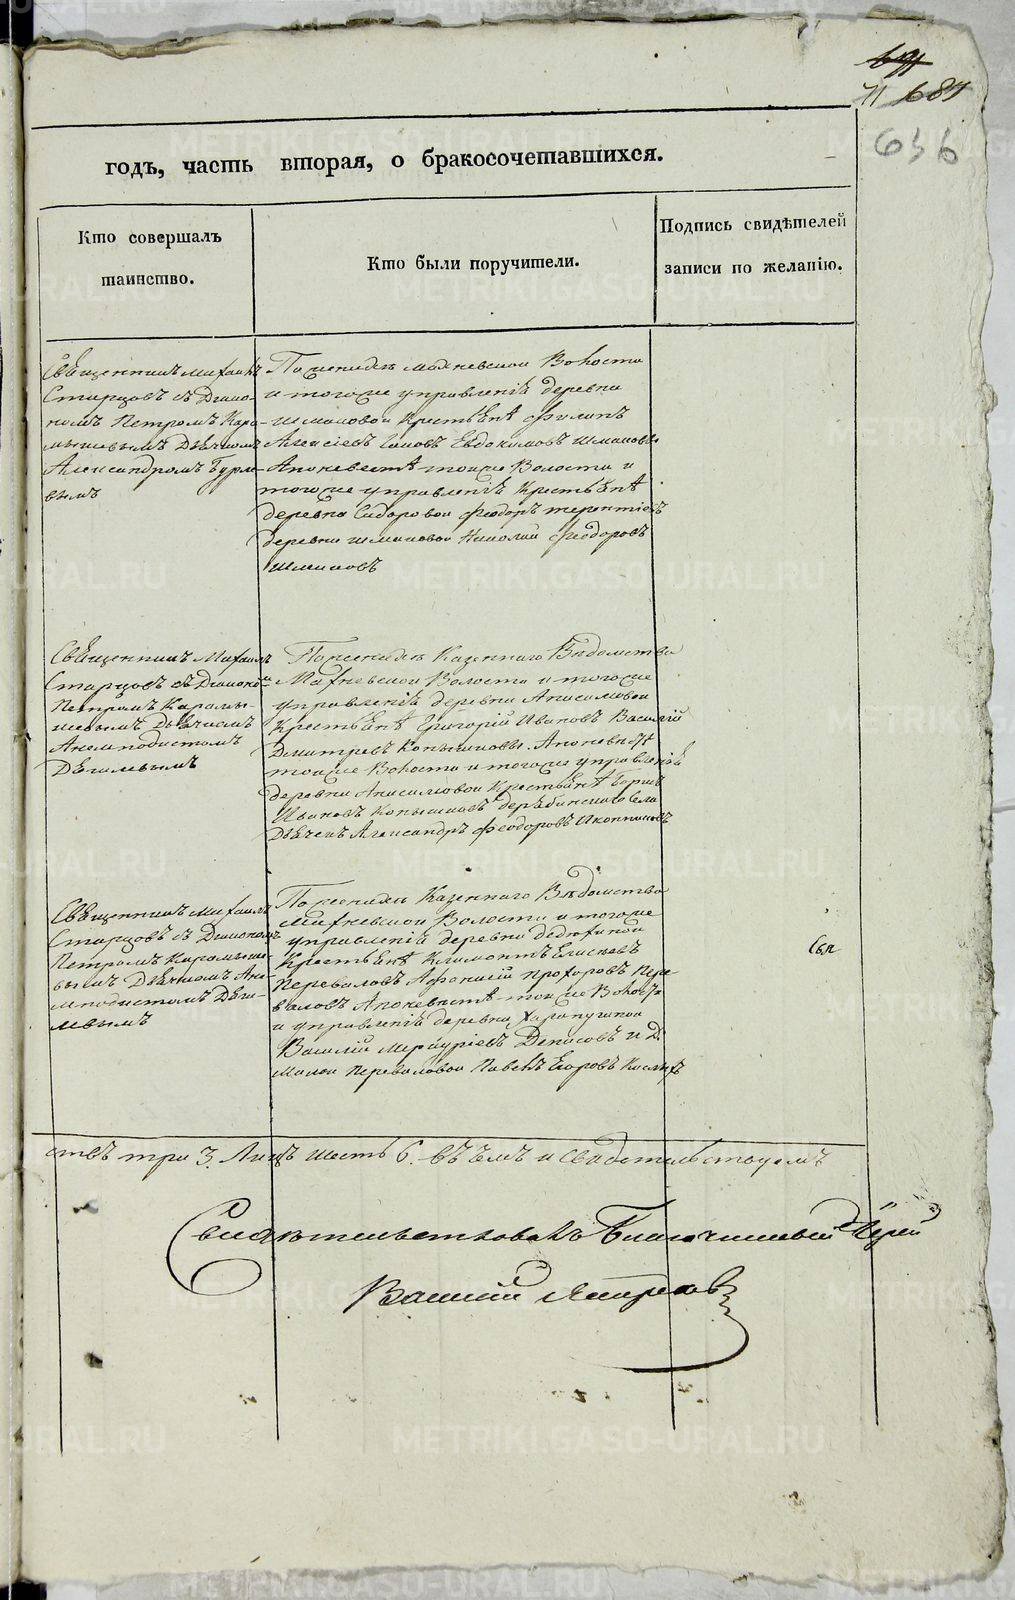 11 687
636
годъ, часть вторая, о бракосочетавшихся.
Кто совершалъ
таинство.
Кто были поручители.
Подпись свидѣтелей
записи по желанію.
Священникъ Михаилъ
Старцовъ съ Діако-
номъ Петромъ Кара-
мышевымъ Дьячкомъ
Александромъ
вымъ
По женихѣ Махневской Волости
и тогоже управленія деревни
Шмаковой Крестьяне Филипъ
Алексіевъ Евдокимовъ Шмаковы
А по невестѣ тойже Волости и
тогоже управленія Крестьяне
деревни Сидоровой Феодоръ терентіевъ
деревни Шмаковой Николай Феодоровъ
Шмаковъ
Священникъ Михаилъ
Старцовъ съ Діакономъ
Петромъ Карамы-
шевымъ Дьячкомъ
Анемподистомъ
По женихѣ Казеннаго Ведомства
Махневской Волости и тогоже
управленія деревни Анисимовой
Крестьяне Григорій Ивановъ Василій
Дмитревъ Копышковы. А по невѣстѣ
тойже Волости и тогоже управленія
деревни Анисимовой Крестьяне
Ивановъ села
Дьячекъ Александръ Феодоровъ Иконниковъ
Священникъ Михаилъ
Старцовъ съ Діакономъ
Петромъ Карамыше-
вымъ Дьячкомъ Ане-
мподистомъ
По женихѣ Казеннаго Вѣдомства
Махневской Волости и тогоже
управленія деревни
Крестьяне Климонтъ Елисѣевъ
Переваловъ Афонасій прохоровъ Пере-
валовъ А по невестѣ тойже Волости
и управленія деревни
Василій Меркуріевъ Денисовъ и Д.
Малой Переваловой Павелъ Егоровъ
ствъ три 3. Лицъ шесть 6. въ чемъ и свидетельствуемъ
Свидѣтельствовалъ Благочинный Іерей
Василій